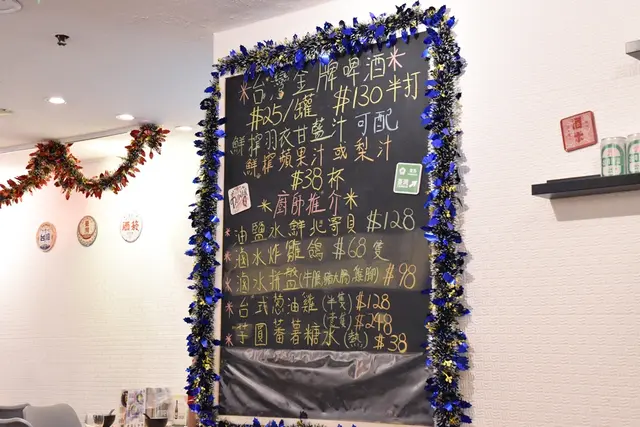 *台灣金牌啤酒*
$25/罐 $130半打
鮮搾羽衣甘藍汁 可配
鮮搾蘋果汁或梨汁
$38杯
*廚師推介*
*油鹽水鮮北寄貝 $128
*滷水炸雞鴿 $68隻
*滷水拼盤 $98
*台式葱油雞(半隻) $128
(隻) $248
*芋圓蕃薯糖水(熱) $38